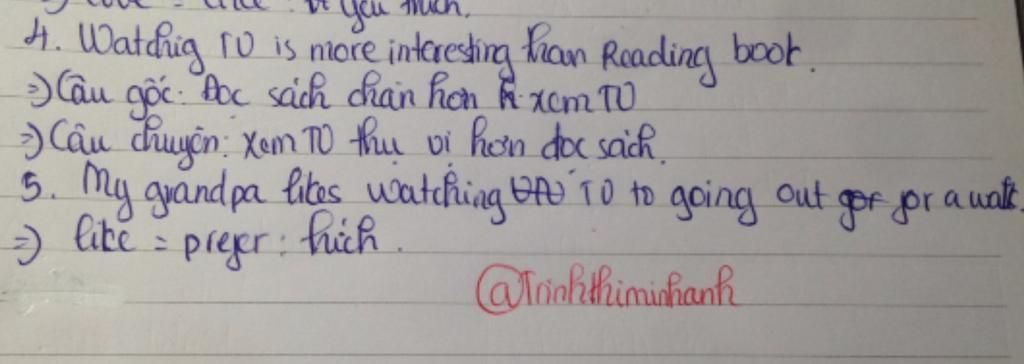 yêu thích.
4. Watchig TV is more interesting than Reading book.
=) Câu gốc: Đọc sách chán hơn xem TV
=) Câu chuyện: xem TV thú vị hơn đọc sách.
5. My grandpa likes watching TV to going out for a walk.
=) like = prefer: thích.
@Trinhthiminhanh